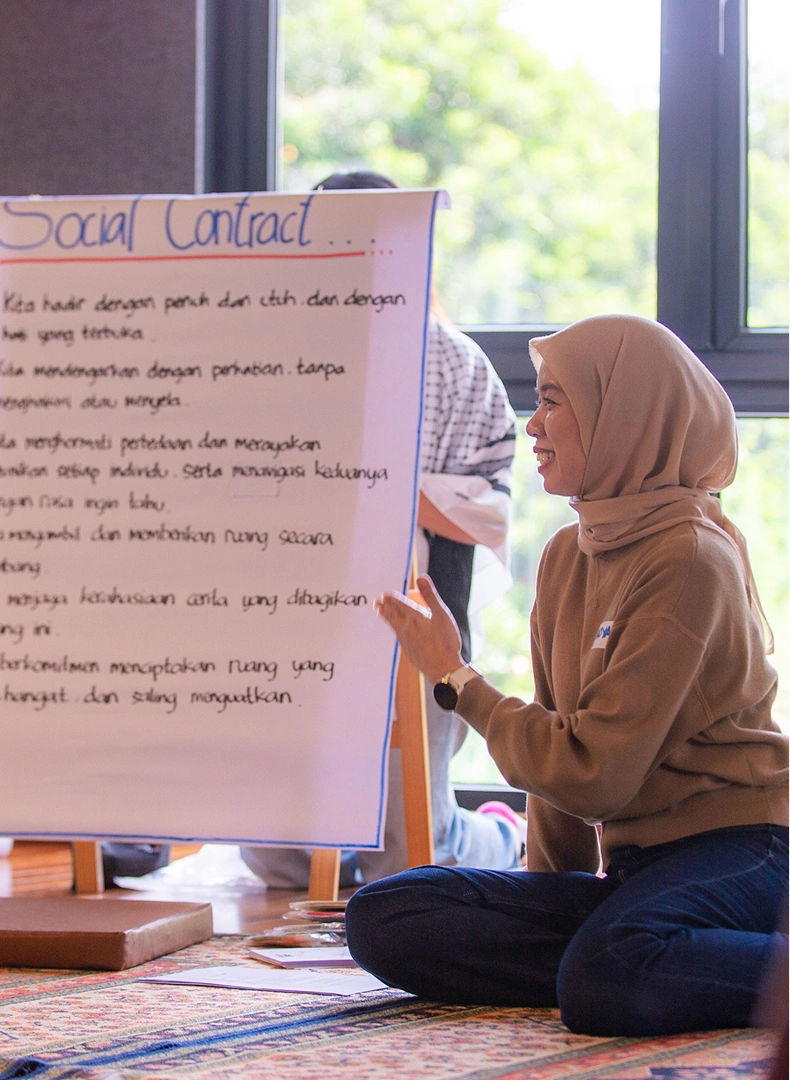 Social Contract ...
Kita hadir dengan penuh dan utuh. dan dengan
hati yang terbuka.
Kita mendengarkan dengan perhatian. tanpa
menghakimi atau menyela.
menghormati perbedaan dan merayakan
setiap individu. serta menavigasi keduanya
rasa ingin tahu.
mengambil dan memberikan ruang secara
menjaga kerahasiaan cerita yang dibagikan
ini.
berkomitmen menciptakan ruang yang
hangat. dan saling menguatkan.